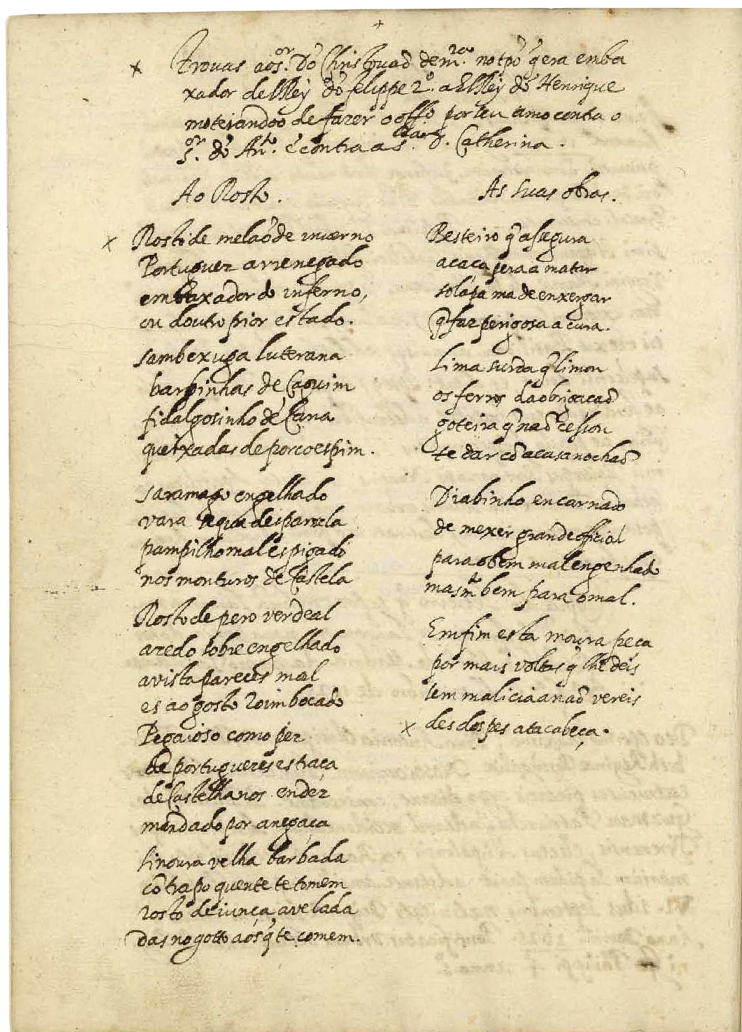 +
x Trovas ao sor. Dõ Christovaõ de mra. no tpõ q̃ era emba
xador delRey dõ felippe 2º. a ElRey dõ Henrique
motejandoo de fazer o offo. por seu amo contra o
sor. dõ Anto. e contra a s. D. Catherina.
Ao Rosto.
x Rosto de melaõ de inverno
Portuguez arrenegado
embaxador do inferno,
ou doutro pior estado.
sambexuga luterana
barbinhas de Caquim
fidalgosinho de Cana
queixadas de porco espim.
saramago engelhado
vara
pampilho mal espigado
nos monturos de Castela
Rosto de pero verdeal
azedo sobre engelhado
a vista pareces mal
es ao gosto
Pegajoso como pez
de portuguezes estraça
de Castelhanos endez
mandado por anegaça
sinoura velha barbada
cõ trapo quente te tomem
rosto de junça avelada
das no gotto aos q̃ te comem.
As suas obras.
Besteiro q̃ asegura
a caça pera a matar
solapa ma de enxergar
q̃ faz perigosa a cura.
Lima surda q̃ limou
os ferros da obrigaçaõ
goteira q̃ naõ cessou
te dar cõ a casa no chaõ
Diabinho encarnado
de mexer grande official
para o bem mal engenhado
mas mto bem para o mal.
Emfim esta moura peca
por mais voltas q̃ lhe deis
sem malicia a naõ vereis
x des dos pes ata cabeça.